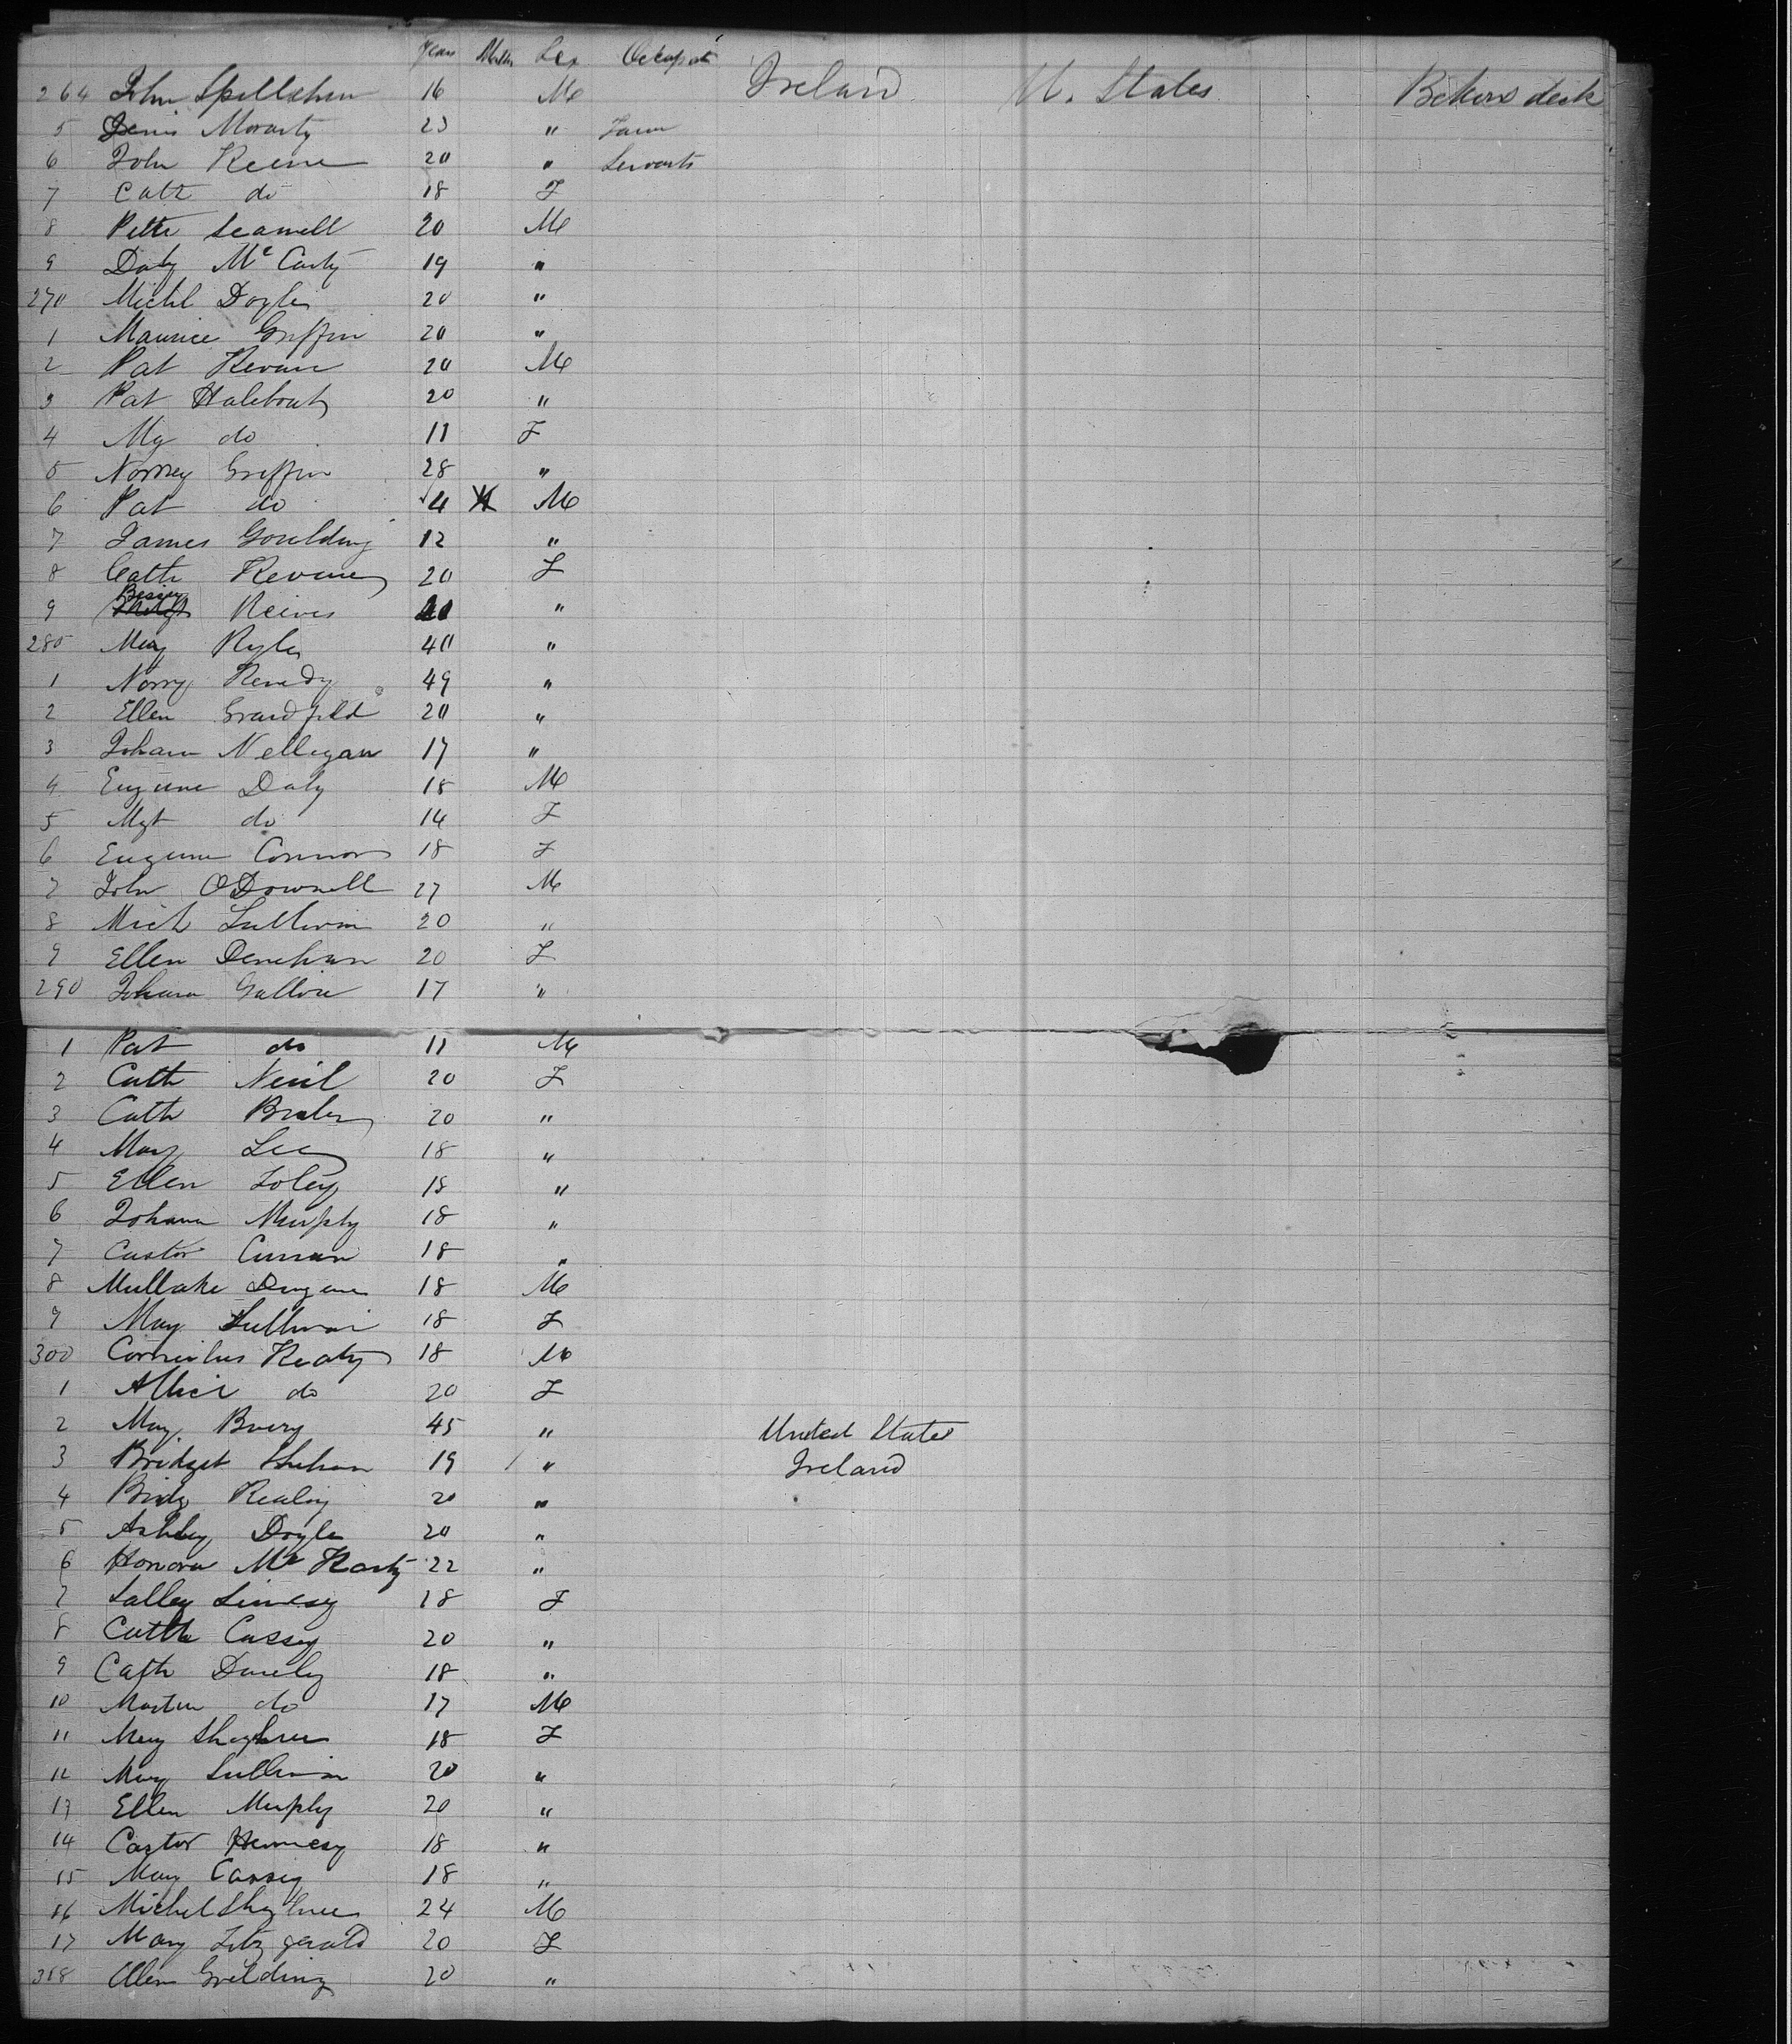 Years Mths Sex Occupat
264 John Spillshun 16 M Ireland U. States Between deck
5 Denis Moriarty 23 " Farm
6 John Keene 20 " Servants
7 Cath do 18 F
8 Peter Scannell 20 M
9 Daly McCarty 19 "
270 Michl Doyle 20 "
1 Maurice Griffin 20 "
2 Pat Kevane 20 M
3 Pat 20 "
4 My do 11 F
5 Norrey Griffin 28 "
6 Pat do 4 M
7 James Goulding 12 "
8 Cath Kevane 20 F
9 Bessy Reives "
280 Mary Ryle 40 "
1 Norry Kenedy 49 "
2 Ellen Grandfild 20 "
3 Johana Nelligan 17 "
4 Eugene Daly 18 M
5 Mgt do 14 F
6 Eugene Connor 18 F
7 John ODownell 27 M
8 Mich Sullivan 20 "
9 Ellen Denehan 20 F
290 Johana Gallvin 17 "
1 Pat do 11 M
2 Cath Nevil 20 F
3 Cath 20 "
4 Mary Lee 18 "
5 Ellen Foley 18 "
6 Johana Murphy 18 "
7 Castor Curran 18 "
8 Dugan 18 M
9 Mary Sullivan 18 F
300 Corneilus Keaty 18 M
1 Allice do 20 F
2 Mary 45 " United States
3 Bridget Shehan 19 " Ireland
4 Bridg Kealy 20 "
5 Ashley Doyle 20 "
6 Honora Mc Karty 22 "
7 Salley 18 F
8 Cath Cassey 20 "
9 Cath 18 "
10 Marten do 17 M
11 Mary 18 F
12 Mary Sullivan 20 "
13 Ellen Murphy 20 "
14 Castor Hennesy 18 "
15 Mary Cassey 18 "
16 Michel 24 M
17 Mary Fitzgerald 20 F
318 Ellen Gvelding 20 "